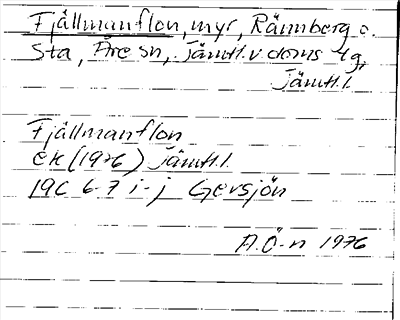 Fjällmanflon, myr, Rännberg o.
Sta, Åre sn, Jämtl. v. doms tg,
Jämtl. l.
Fjällmanflon
ek (1976) Jämtl. l.
19C 6-7 i-j Gevsjön
A.Ö-n 1976